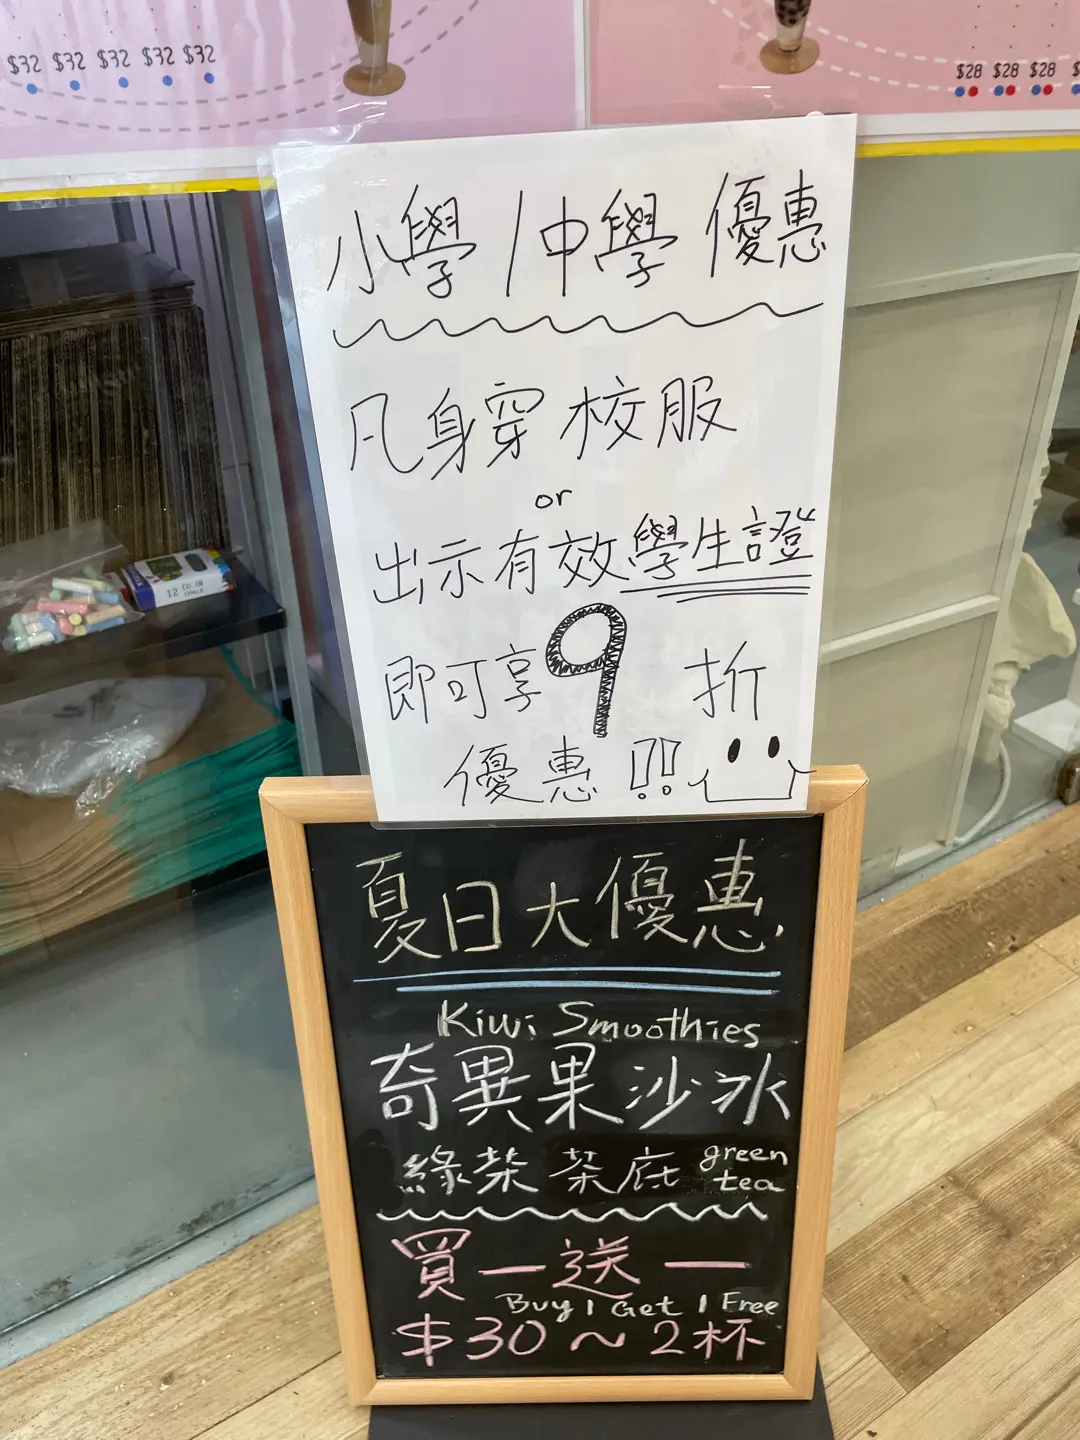 $32 $32 $32 $32 $32
$28 $28 $28
小學/中學 優惠
凡身穿校服
or
出示有效學生證
即可享9折
優惠!!
12 COLOR
CHALK
夏日大優惠
Kiwi Smoothies
奇異果沙冰
綠茶茶底 green
tea
買一送一
Buy 1 Get 1 Free
$30~2杯